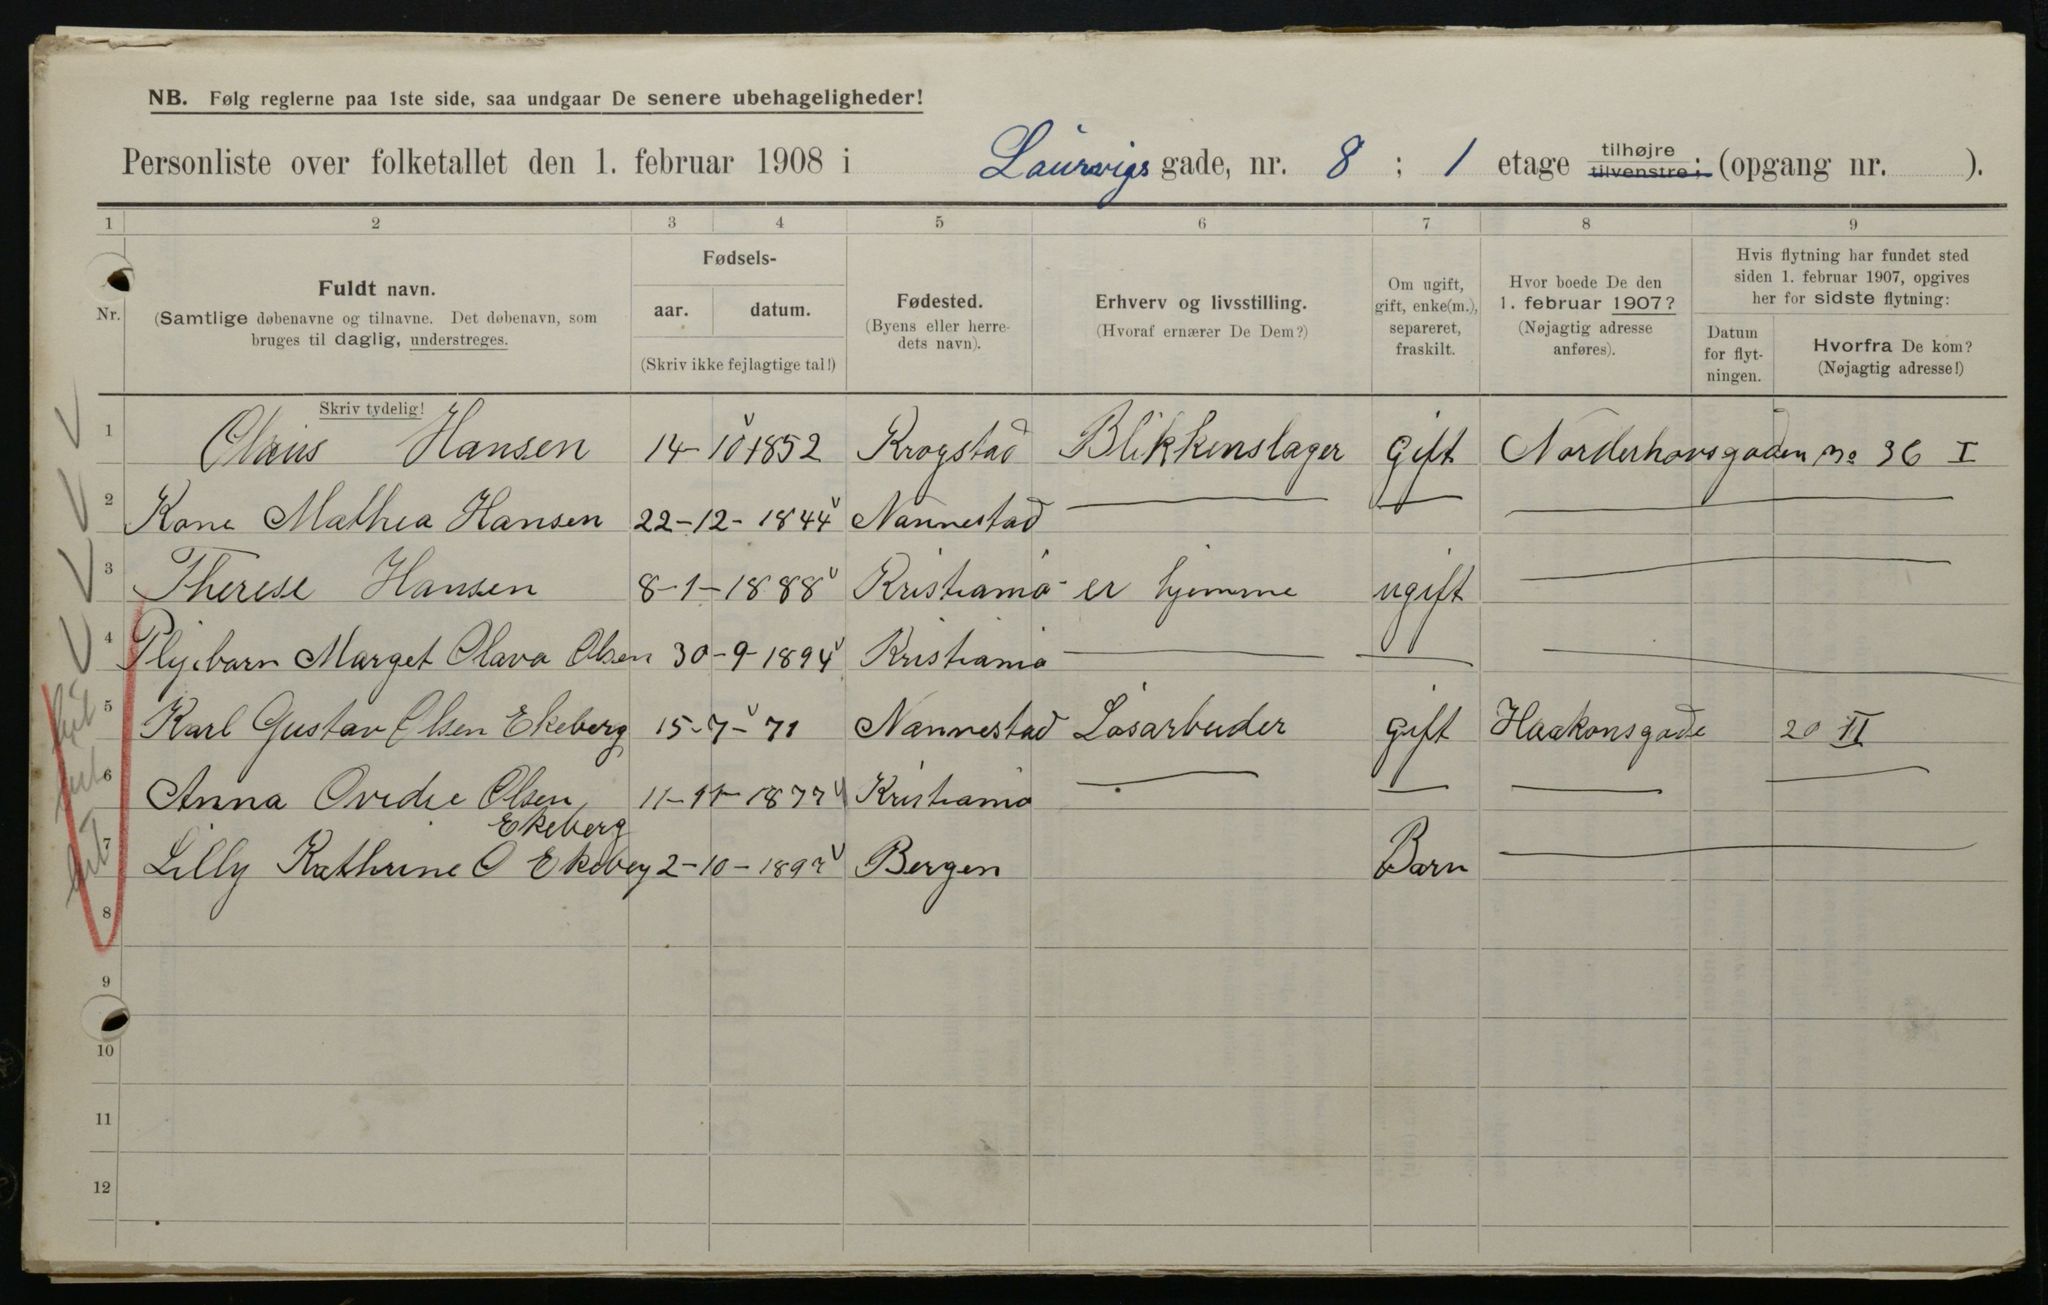 NB. Følg reglerne paa 1ste side, saa undgaar De senere ubehageligheder!
Personliste over folketallet den 1. februar 1908 i Laurvigs gade, nr. 8 ; 1 etage tilhøjre tilvenstre; (opgang nr. ).
1 2 3 4 5 6 7 8 9
Nr.
Fuldt navn.
(Samtlige døbenavne og tilnavne. Det døbenavn, som
bruges til daglig, understreges.
Skriv tydelig!
Fødsels-
aar. datum.
(Skriv ikke fejlagtige tal!)
Fødested.
(Byens eller herre-
dets navn).
Erhverv og livsstilling.
(Hvoraf ernærer De Dem?)
Om ugift,
gift, enke(m.),
separeret,
fraskilt.
Hvor boede De den
1. februar 1907?
(Nøjagtig adresse
anføres).
Hvis flytning har fundet sted
siden 1. februar 1907, opgives
her for sidste flytning:
Datum
for flyt-
ningen.
Hvorfra De kom?
(Nøjagtig adresse!)
1 Claus Hansen 14-10 1852 Krogstad Blikkenslager gift Norderhovsgaden No 36 I
2 Kone Mathea Hansen 22-12-1844 Nannestad — — —
3 Therese Hansen 8-1-1888 Kristiania er hjemme ugift —
4 Plejebarn Marget Olava Olsen 30-9-1894 Kristiania — — —
5 Karl Gustav Olsen Ekeberg 15-7-71 Nannestad Løsarbeider gift Haakonsgade 20 II
6 Anna Ovedie Olsen 11-11-1877 Kristiania — — — —
Ekeberg
7 Lilly Kathrine O Ekeberg 2-10-1897 Bergen Barn —
8
9
10
11
12